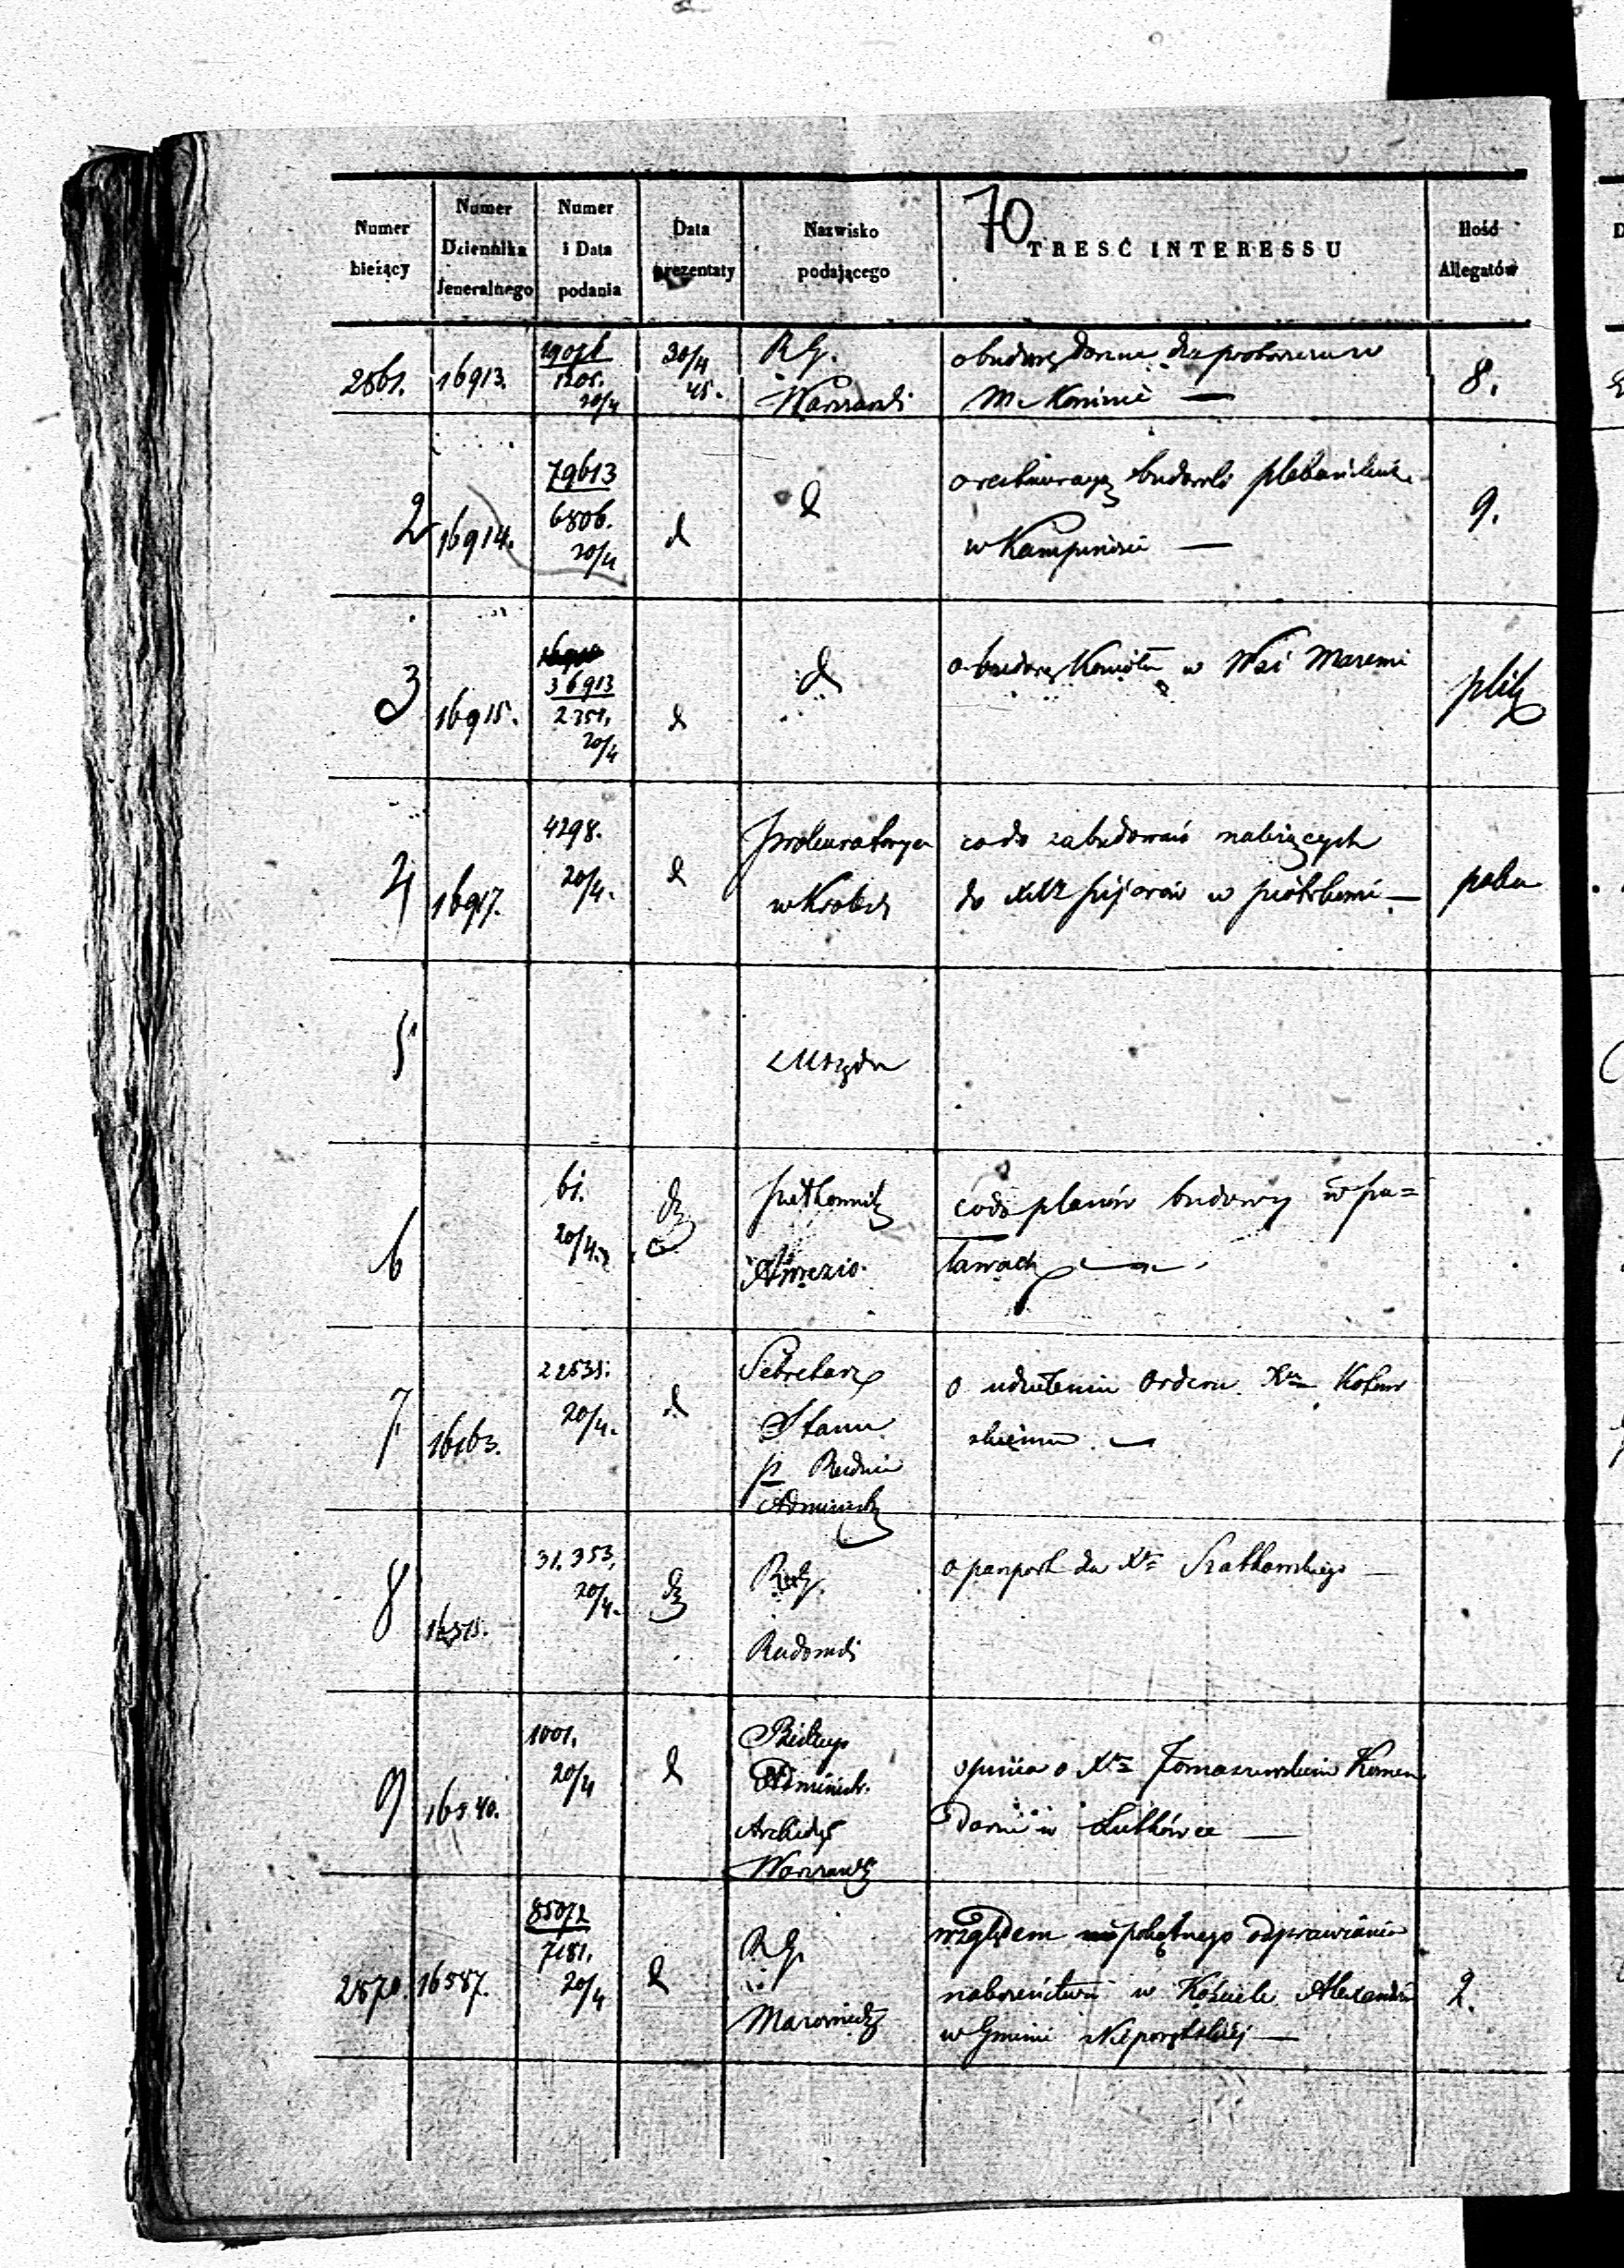 70
Numer bieżący
Numer Dziennika Jeneralnego
Numer i Data podania
Data prezentaty
Nazwisko podającego
TRESĆ INTERESSU
Ilość Allegatów
2861. 16913. 1205. 20/4 30/4 45. R. G. Warszawski
o budowę domu dla proboszcza w
M. Koninie —
8.
2 16914. 79613 6806. 20/4 d d
o restauracyę budowli plebańskich
w Kampinosie —
9.
3 16915. 36913 2351. 20/4 d d
o budowę Kościoła w Wsi
plik
4 16917. 4298. 20/4. d Prokuratorya
w Królest
co do zabudowań należących
do XX Pijarów w Piotrkowie —
5
z Urzędu
6 61. 20/4. Pułkownik
co do planów budowy w Pu=
ławach
7 16163. 22535. 20/4. d Sekretarz
Stanu
o udzieleniu orderu Xu
skiemu. —
8 31.353. 20/4. Radomski
o paszport dla Xa Szatkowskiego —
9 16540. 1001. 20/4 d Biskup
Administr.
Archidyec
Warszawsk
opinia o Xu Tomaszewskim Komen
darzu w Lutkówce —
2870. 16587. 85072 7181. 20/4 d R. G.
Mazowieck
względem pokątnego odprawiania
nabożeństwa w Kościele Alexandr
w Gminie Nieporętskiej —
2.